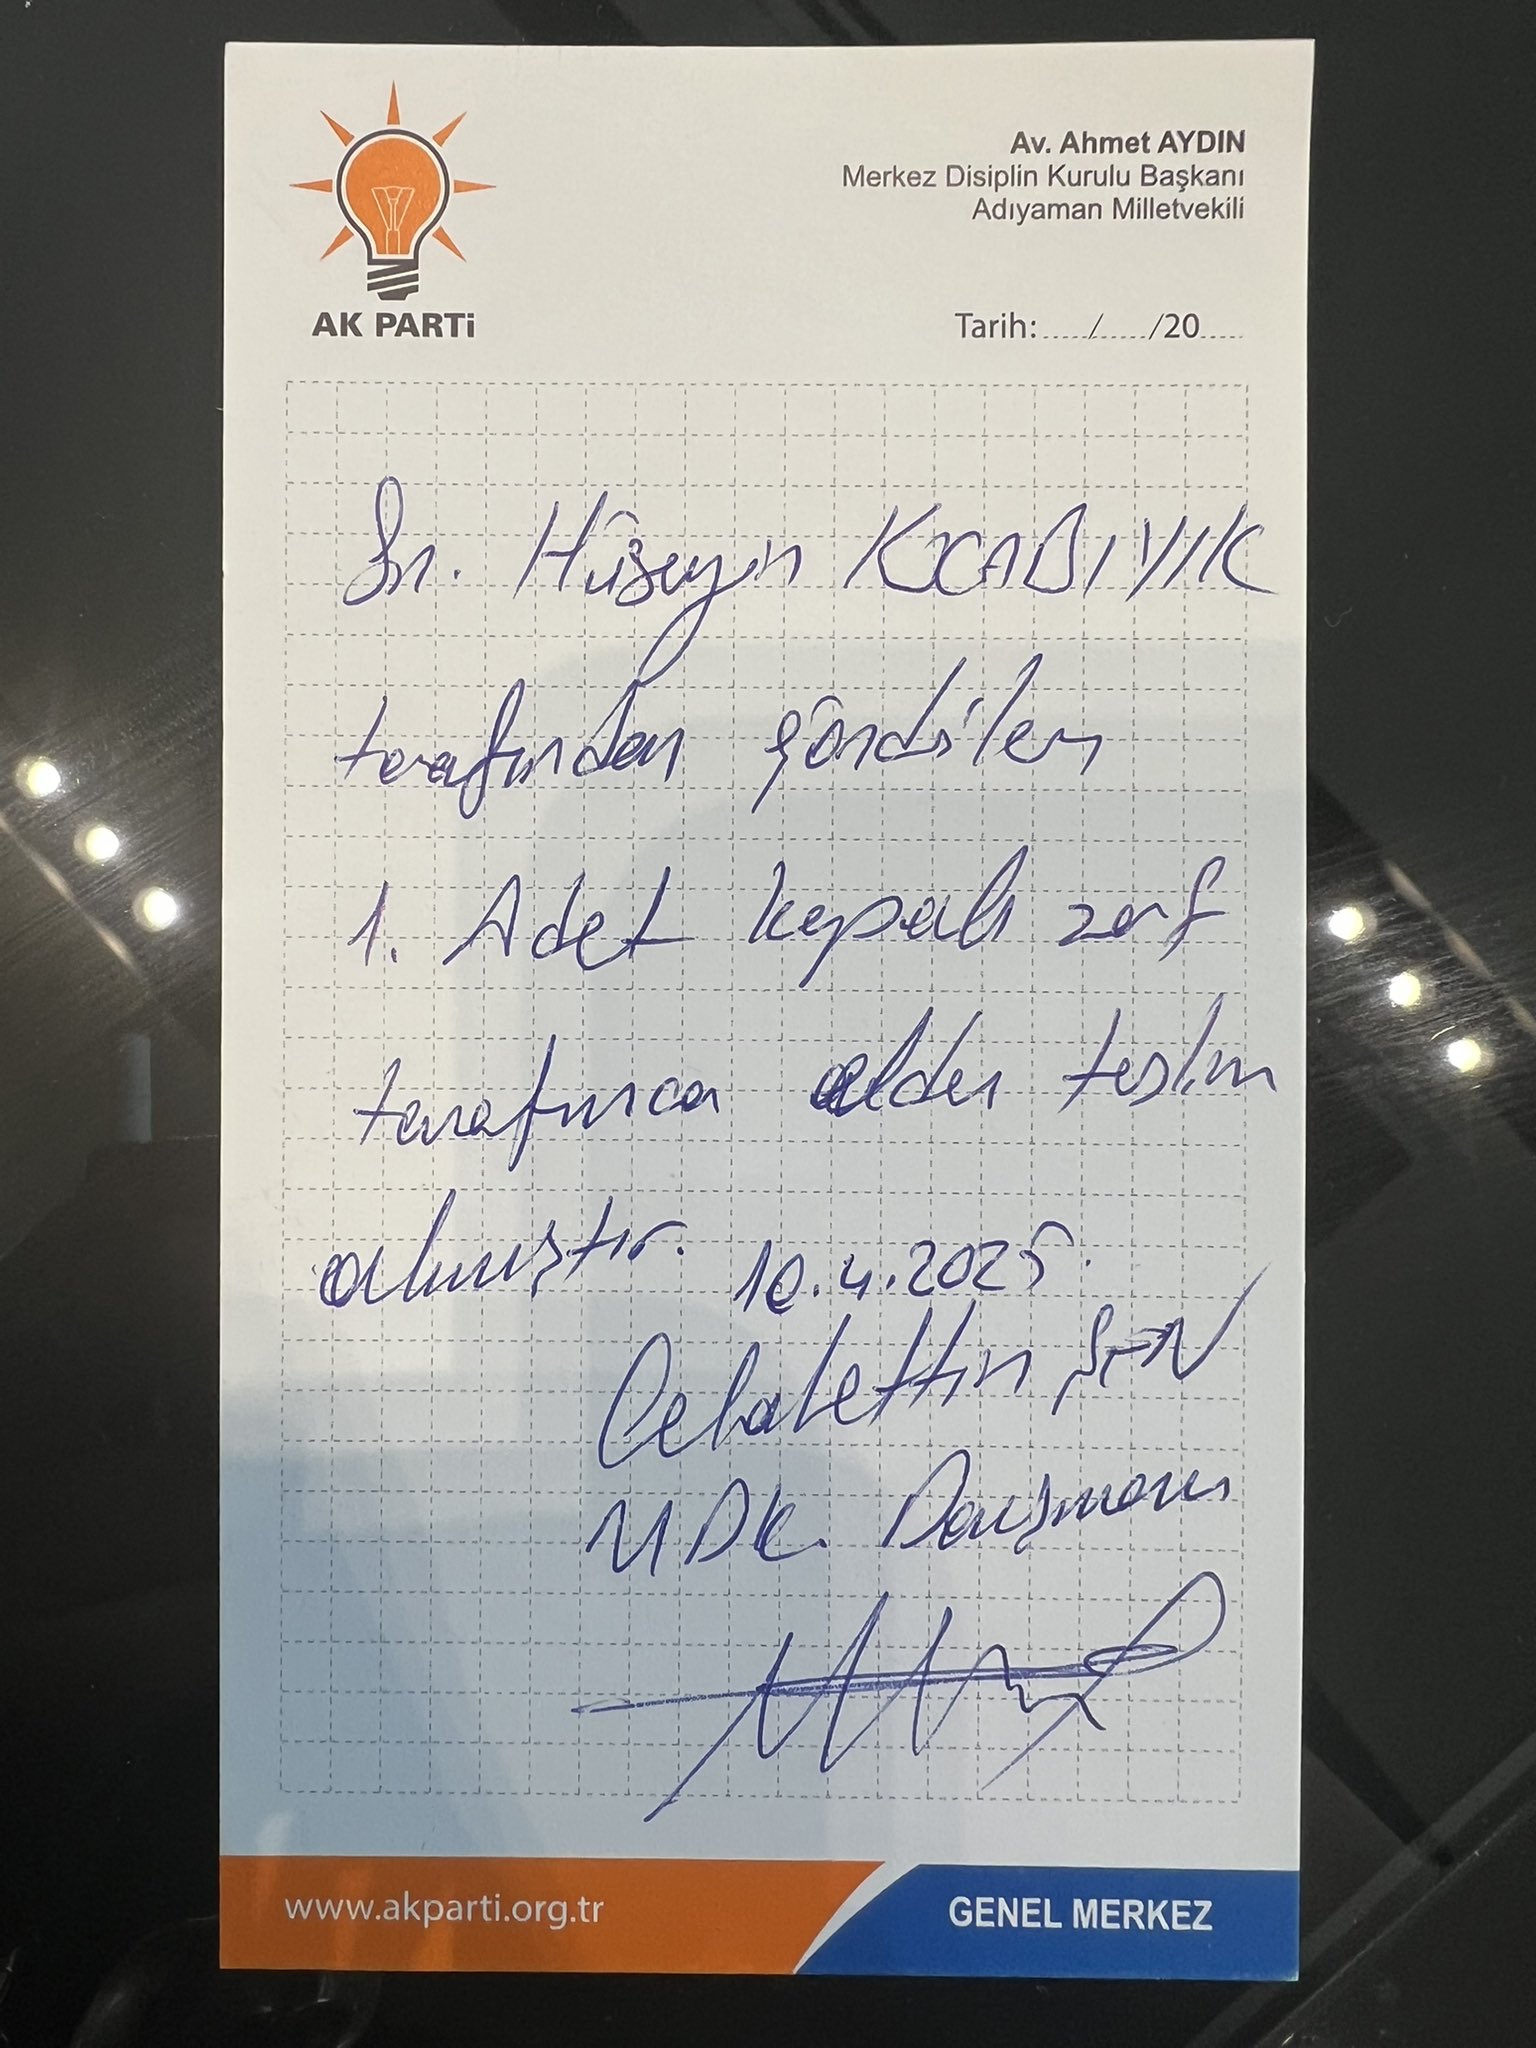 AK PARTİ
Av. Ahmet AYDIN
Merkez Disiplin Kurulu Başkanı
Adıyaman Milletvekili
Tarih: ...../...../20.....
Sn. Hüseyin KOCABIYIK
tarafından gönderilen
1. Adet kapalı zarf
tarafımca elden teslim
alınmıştır. 10.4.2025.
Celalettin ŞEN
MDK. Danışmanı
www.akparti.org.tr
GENEL MERKEZ